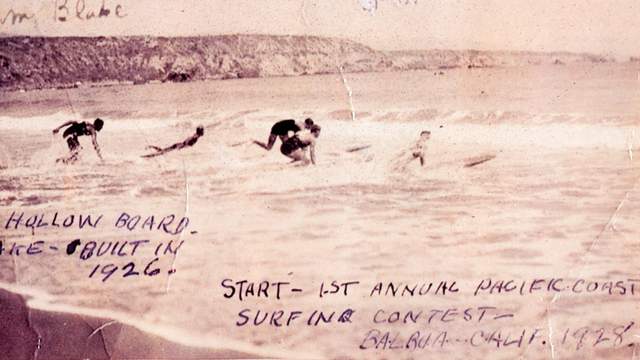 Blake
HOLLOW BOARD.
AKE - BUILT IN
1926.
START - 1ST ANNUAL PACIFIC COAST
SURFING CONTEST -
BALBOA - CALIF. 1928.